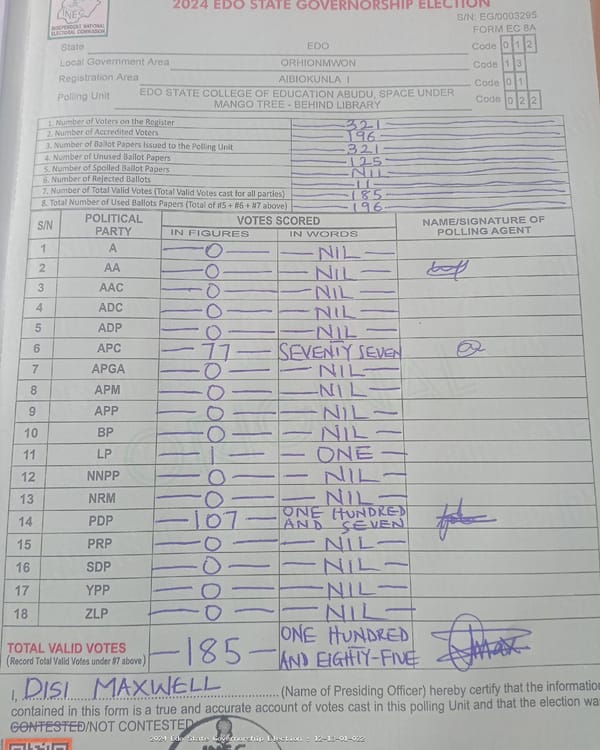 2024 EDO STATE GOVERNORSHIP ELECTION
INEC
INDEPENDENT NATIONAL ELECTORAL COMMISSION
S/N: EG/0003295
FORM EC 8A
State EDO Code 0 1 2
Local Government Area ORHIONMWON Code 1 3
Registration Area AIBIOKUNLA I Code 0 1
Polling Unit EDO STATE COLLEGE OF EDUCATION ABUDU, SPACE UNDER MANGO TREE - BEHIND LIBRARY Code 0 2 2
1. Number of Voters on the Register 321
2. Number of Accredited Voters 196
3. Number of Ballot Papers Issued to the Polling Unit 321
4. Number of Unused Ballot Papers 125
5. Number of Spoiled Ballot Papers NIL
6. Number of Rejected Ballots 11
7. Number of Total Valid Votes (Total Valid Votes cast for all parties) 185
8. Total Number of Used Ballots Papers (Total of #5 + #6 + #7 above) 196
S/N POLITICAL PARTY VOTES SCORED NAME/SIGNATURE OF POLLING AGENT
IN FIGURES IN WORDS
1 A 0 NIL
2 AA 0 NIL
3 AAC 0 NIL
4 ADC 0 NIL
5 ADP 0 NIL
6 APC 77 SEVENTY SEVEN
7 APGA 0 NIL
8 APM 0 NIL
9 APP 0 NIL
10 BP 0 NIL
11 LP 1 ONE
12 NNPP 0 NIL
13 NRM 0 NIL
14 PDP 107 ONE HUNDRED AND SEVEN
15 PRP 0 NIL
16 SDP 0 NIL
17 YPP 0 NIL
18 ZLP 0 NIL
TOTAL VALID VOTES 185 ONE HUNDRED AND EIGHTY-FIVE
(Record Total Valid Votes under #7 above)
I, DISI MAXWELL (Name of Presiding Officer) hereby certify that the information
contained in this form is a true and accurate account of votes cast in this polling Unit and that the election was
CONTESTED/NOT CONTESTED